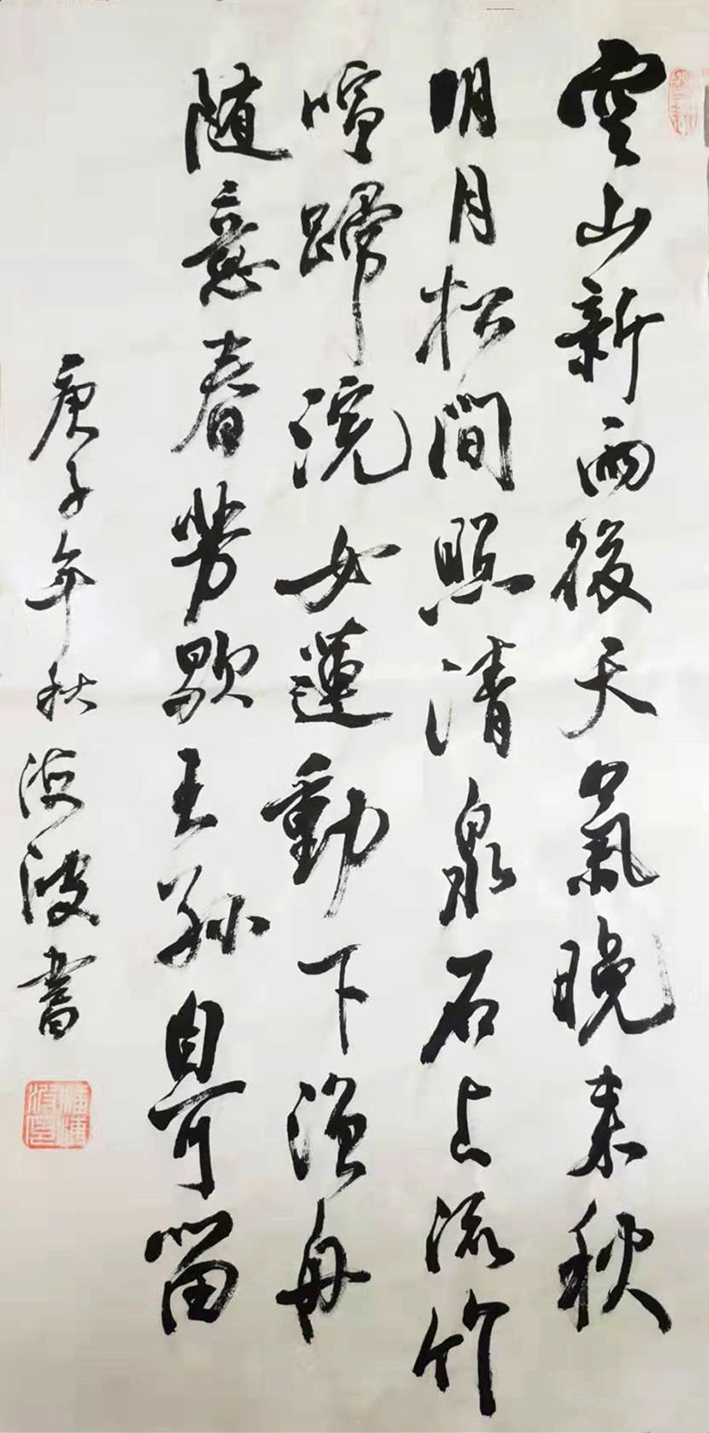 空山新雨後天氣晚来秋
明月松間照清泉石上流竹
喧歸浣女蓮動下漁舟
随意春芳歇王孫自可留
庚子年秋海波書